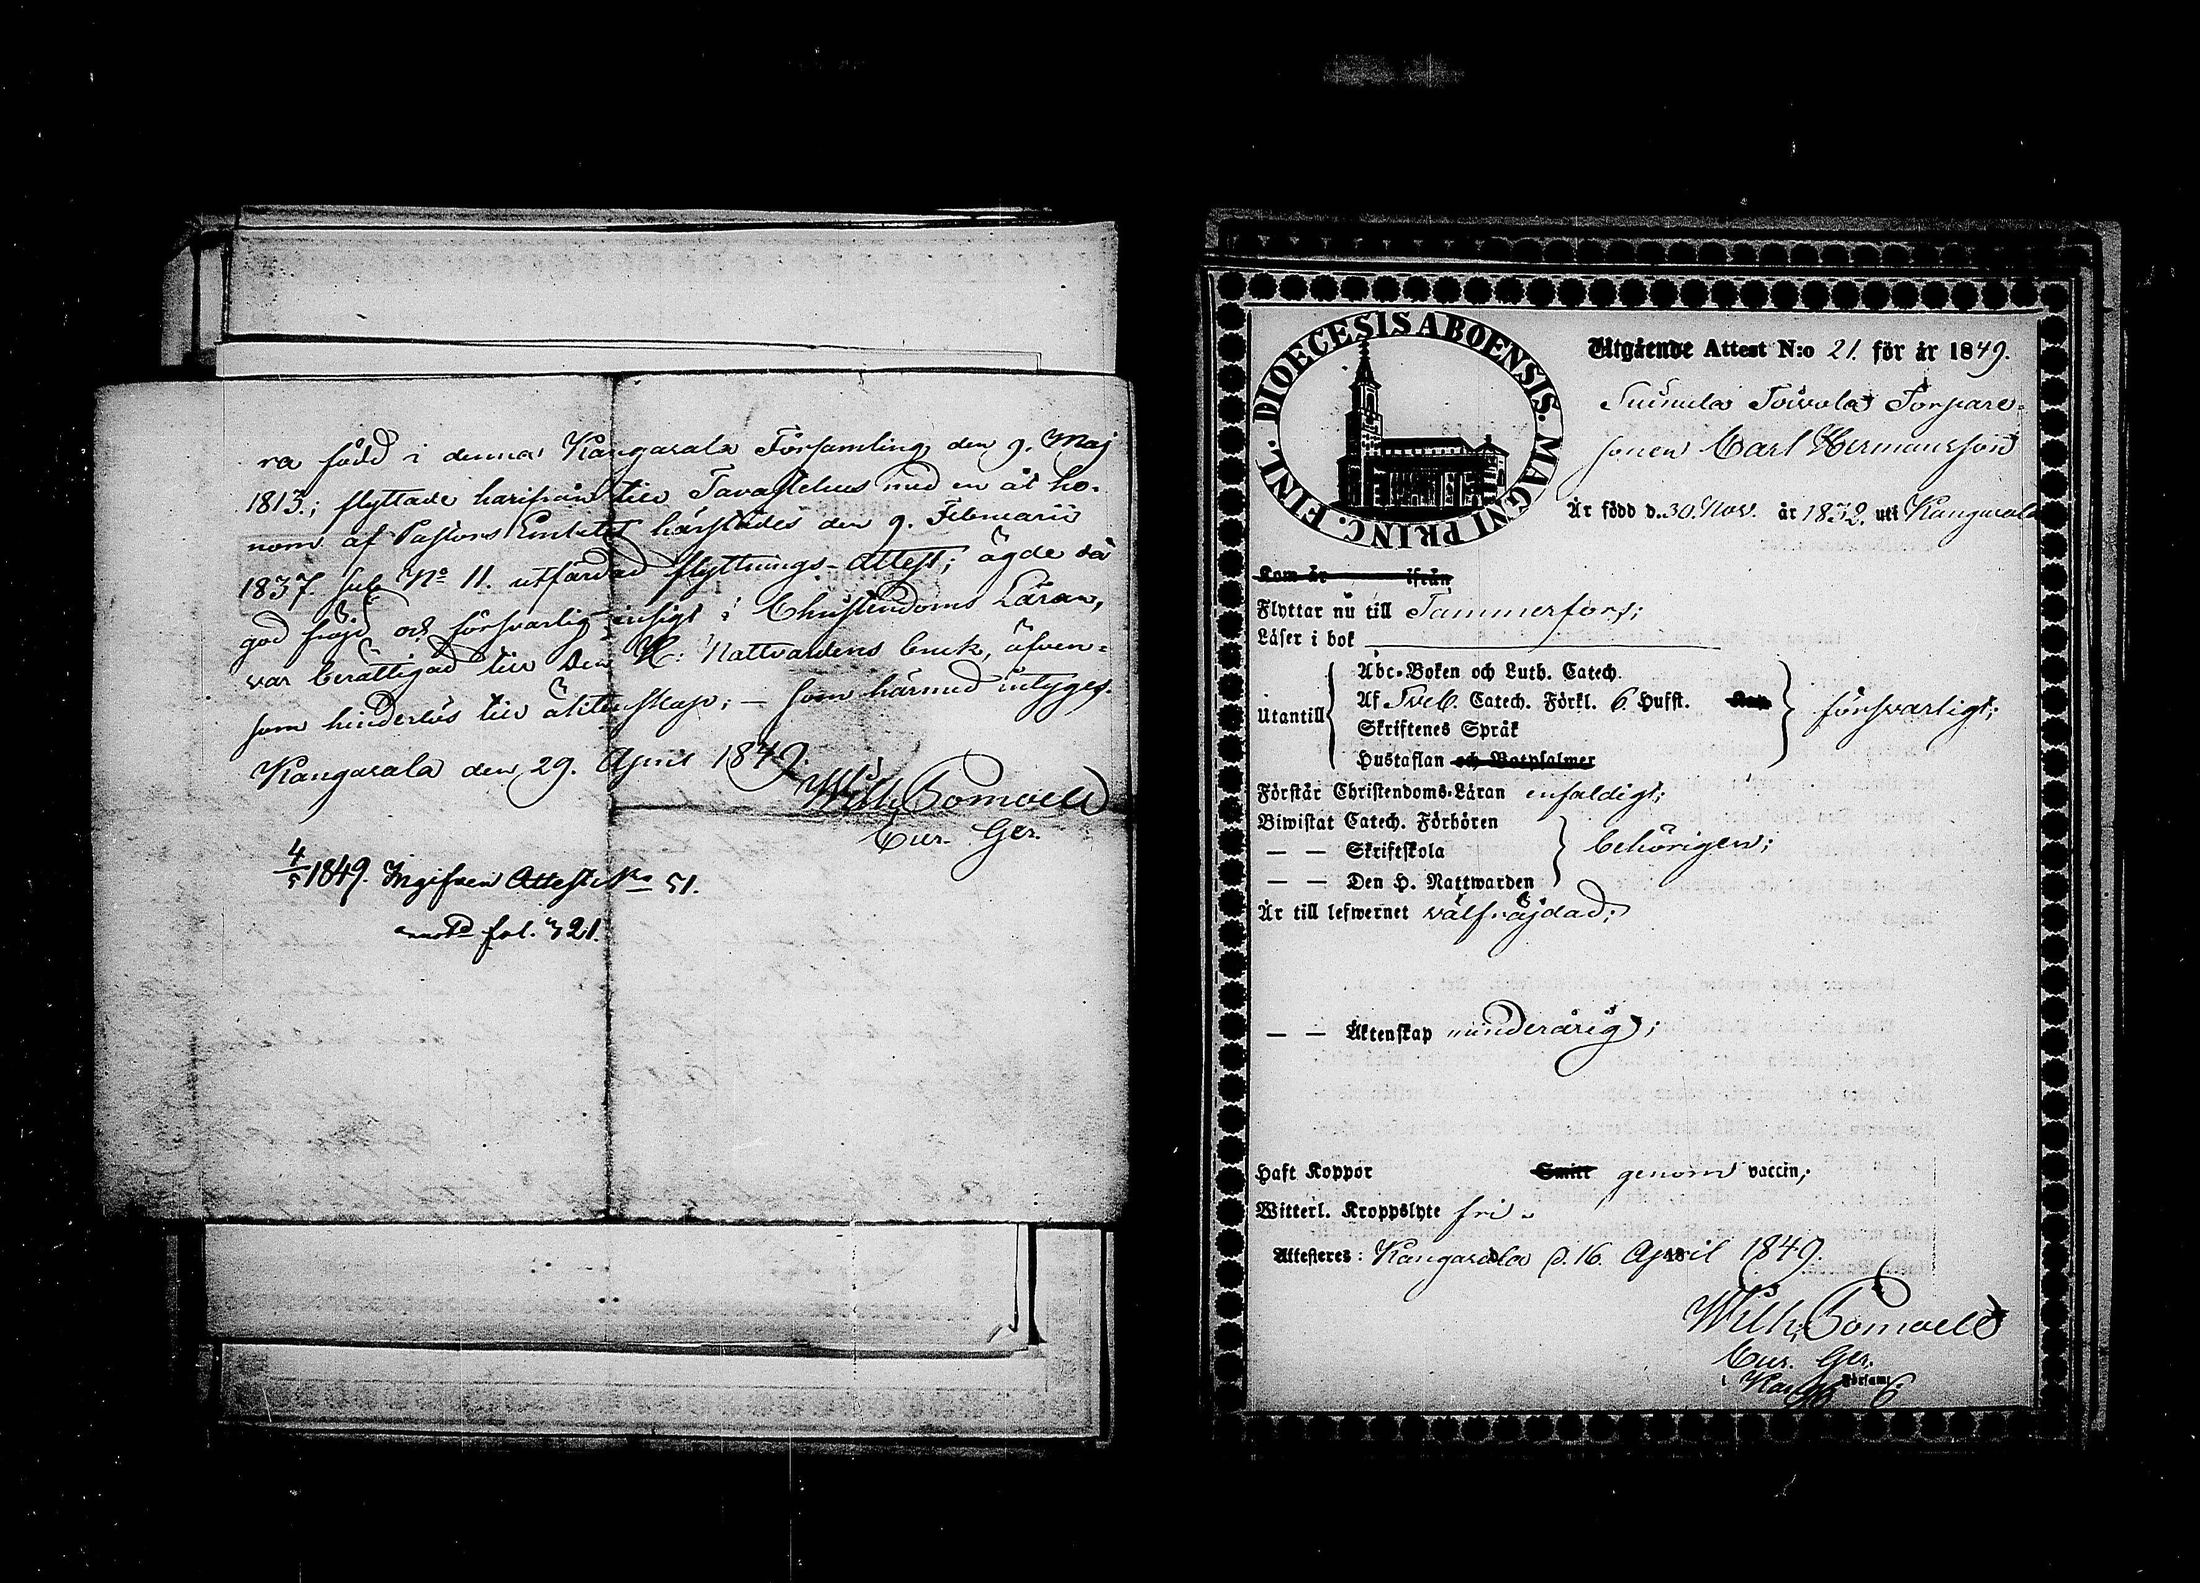 ra född i denna Kangasala Församling den 9. Maj
1813; flyttade härifrån till Tavastehus med en åt ho-
nom af Pastors Embetet härstädes den 9. Februarii
1837. sub No 11. utfärdad flyttnings-attest; ägde då
god fräjd och försvarlig insigt i Christendoms Läran,
var berättigad till den H: Nattvardens bruk, äfven-
som hinderlös till äktenskap; — som härmed intygas.
Kangasala den 29. April 1849.
Wilh.
Cur. Ger.
4/5 1849. Ingifven Attest No 51.
fol. 321.
DIOECESIS ABOENSIS. MAGNI PRINC. FINL.
Utgående Attest N:o 21. för år 1849.
Torpare-
sonen Carl Hermansson
Är född d. 30. Nov. år 1832. uti Kangasala
Kom år ifrån
Flyttar nu till Tammerfors;
Läser i bok
Utantill
Abc-Boken och Luth. Catech.
Af Sveb. Catech. Förkl. 6. Hufst.
Skriftenes Språk
Hustaflan och Botpsalmer
försvarligt;
Förstår Christendoms-Läran enfaldigt;
Biwistat Catech. Förhören
— — Skriftskola
— — Den H. Nattwarden
behörigen;
Är till lefwernet välfräjdad;
— — Äktenskap minderårig;
Haft Koppor genom vaccin;
Witterl. Kroppslyte fri.
Attesteres: Kangasala d. 16. April 1849.
Wilh.
Cur. Ger.
i Församl.